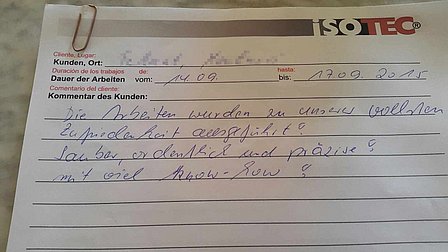 ISOTEC®
Cliente, Lugar:
Kunden, Ort:
Duración de los trabajos de: hasta:
Dauer der Arbeiten vom: 14.09. bis: 17.09.2015
Comentario del cliente:
Kommentar des Kunden:
Die Arbeiten wurden zu unserer vollsten
Zufriedenheit ausgeführt!
Sauber, ordentlich und präzise!
mit viel Know-how!